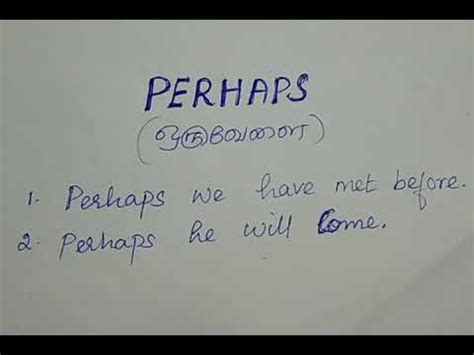 PERHAPS
(ஒருவேளை)
1. Perhaps we have met before.
2. Perhaps he will Come.